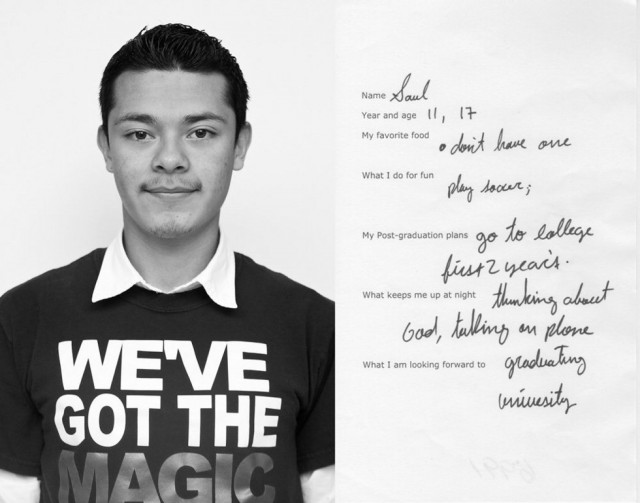 WE'VE
GOT THE
MAGIC
Name Saul
Year and age 11, 17
My favorite food • don't have one
What I do for fun
play soccer;
My Post-graduation plans go to college
first 2 year's.
What keeps me up at night thinking about
God, talking on phone
What I am looking forward to graduating
univesity